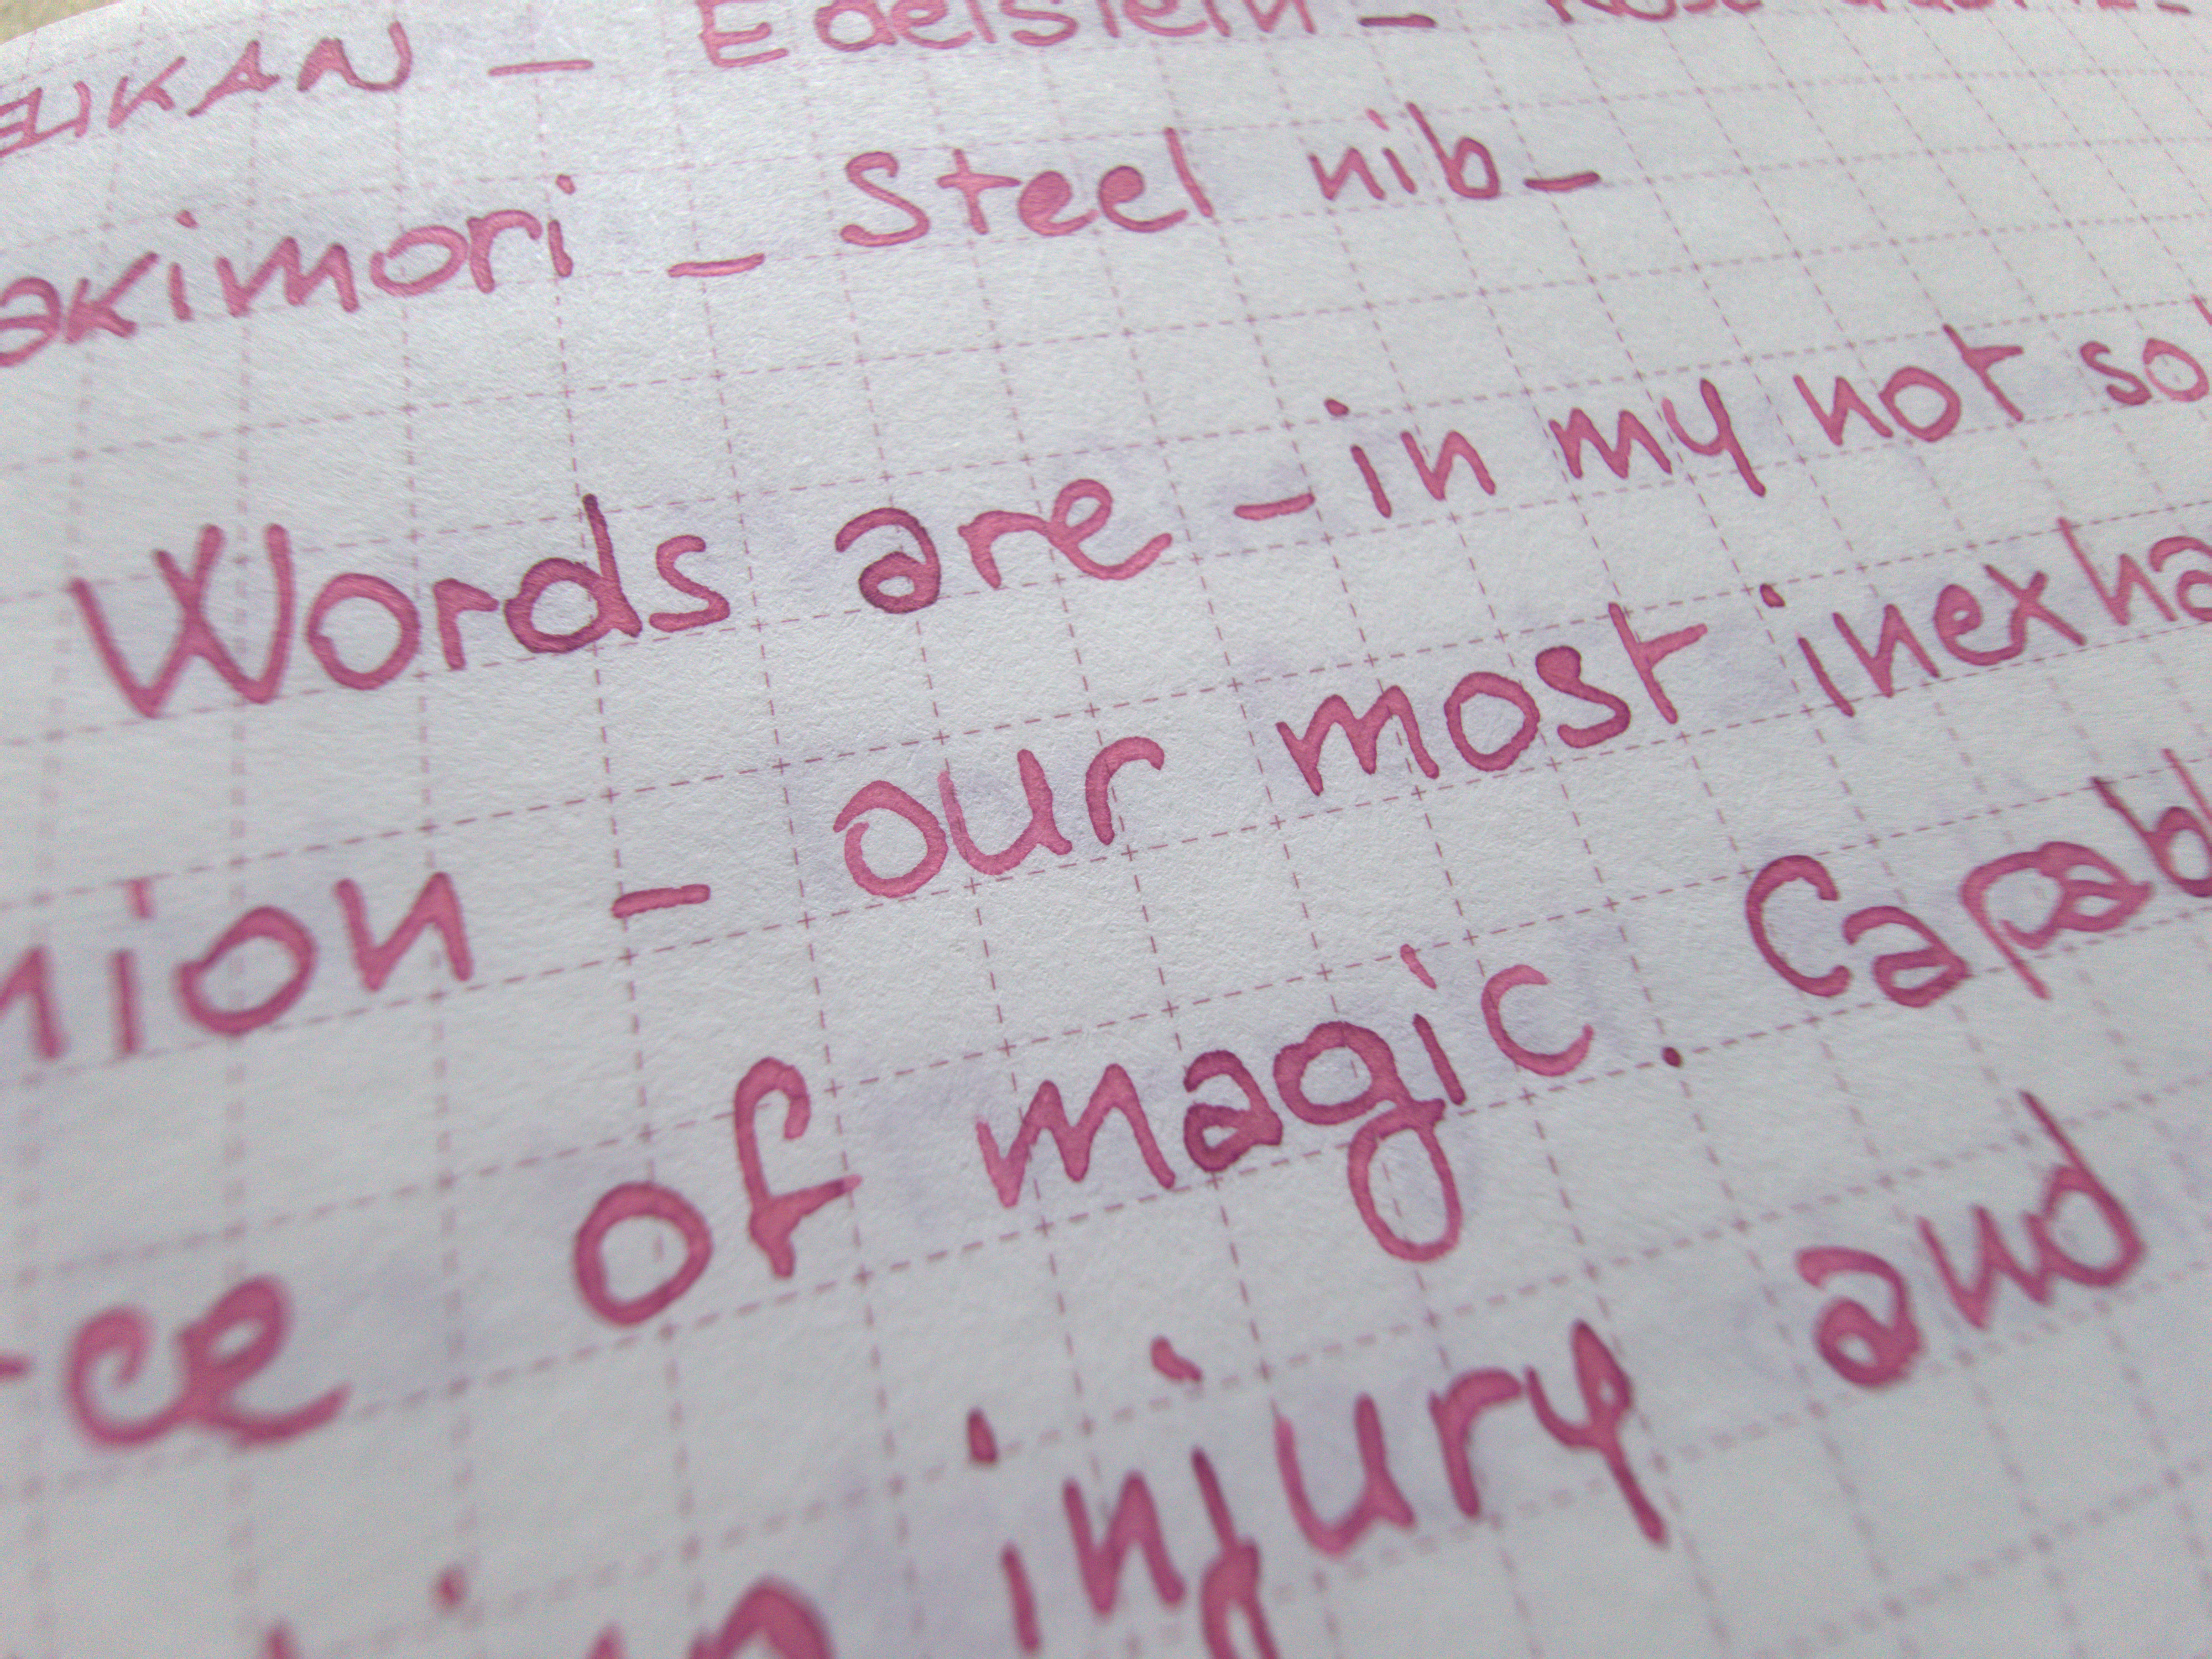 ELIKAN - Edelstein - Rose
akimori - Steel nib -
Words are - in my not so
nion - our most inexha
ce of magic. Capab
injury and